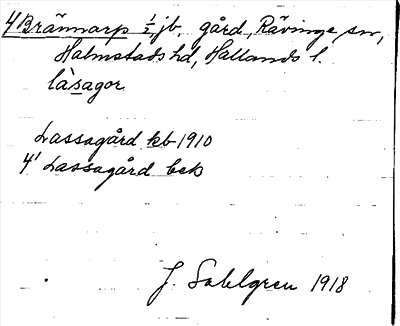 4/Brännarp 1/2 jb, gård, Rävinge sn,
Halmstads hd, Hallands l.
là̀sagor
Lassagård kb 1910
4' Lassagård bek
J. Sahlgren 1918